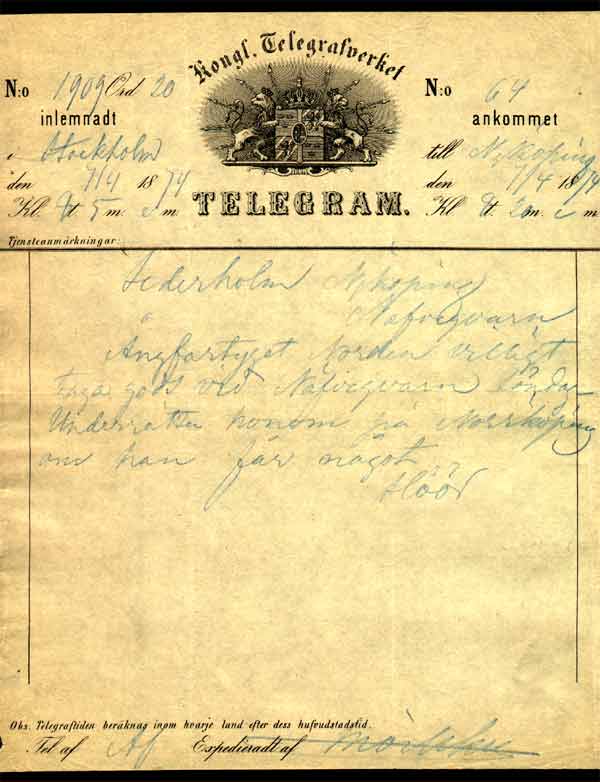 Kongl. Telegrafverket
N:o 1909 Ord 20
N:o 64
inlemnadt
ankommet
i Stockholm
till Nyköping
den 7/4 1874
den 7/4 1874
Kl. 8 t. 5 m. e m.
Kl 8 t. 20 m. e m
TELEGRAM.
Tjensteanmärkningar:
Sederholm Nyköping
Näfveqvarn
Ångfartyget Norden villigt
taga gods vid Näfveqvarn
Underrätta honom på Norrköping
om han får något
Höör
Obs. Telegraftiden beräknas inom hvarje land efter dess hufvudstadstid.
Tel af Expedieradt af